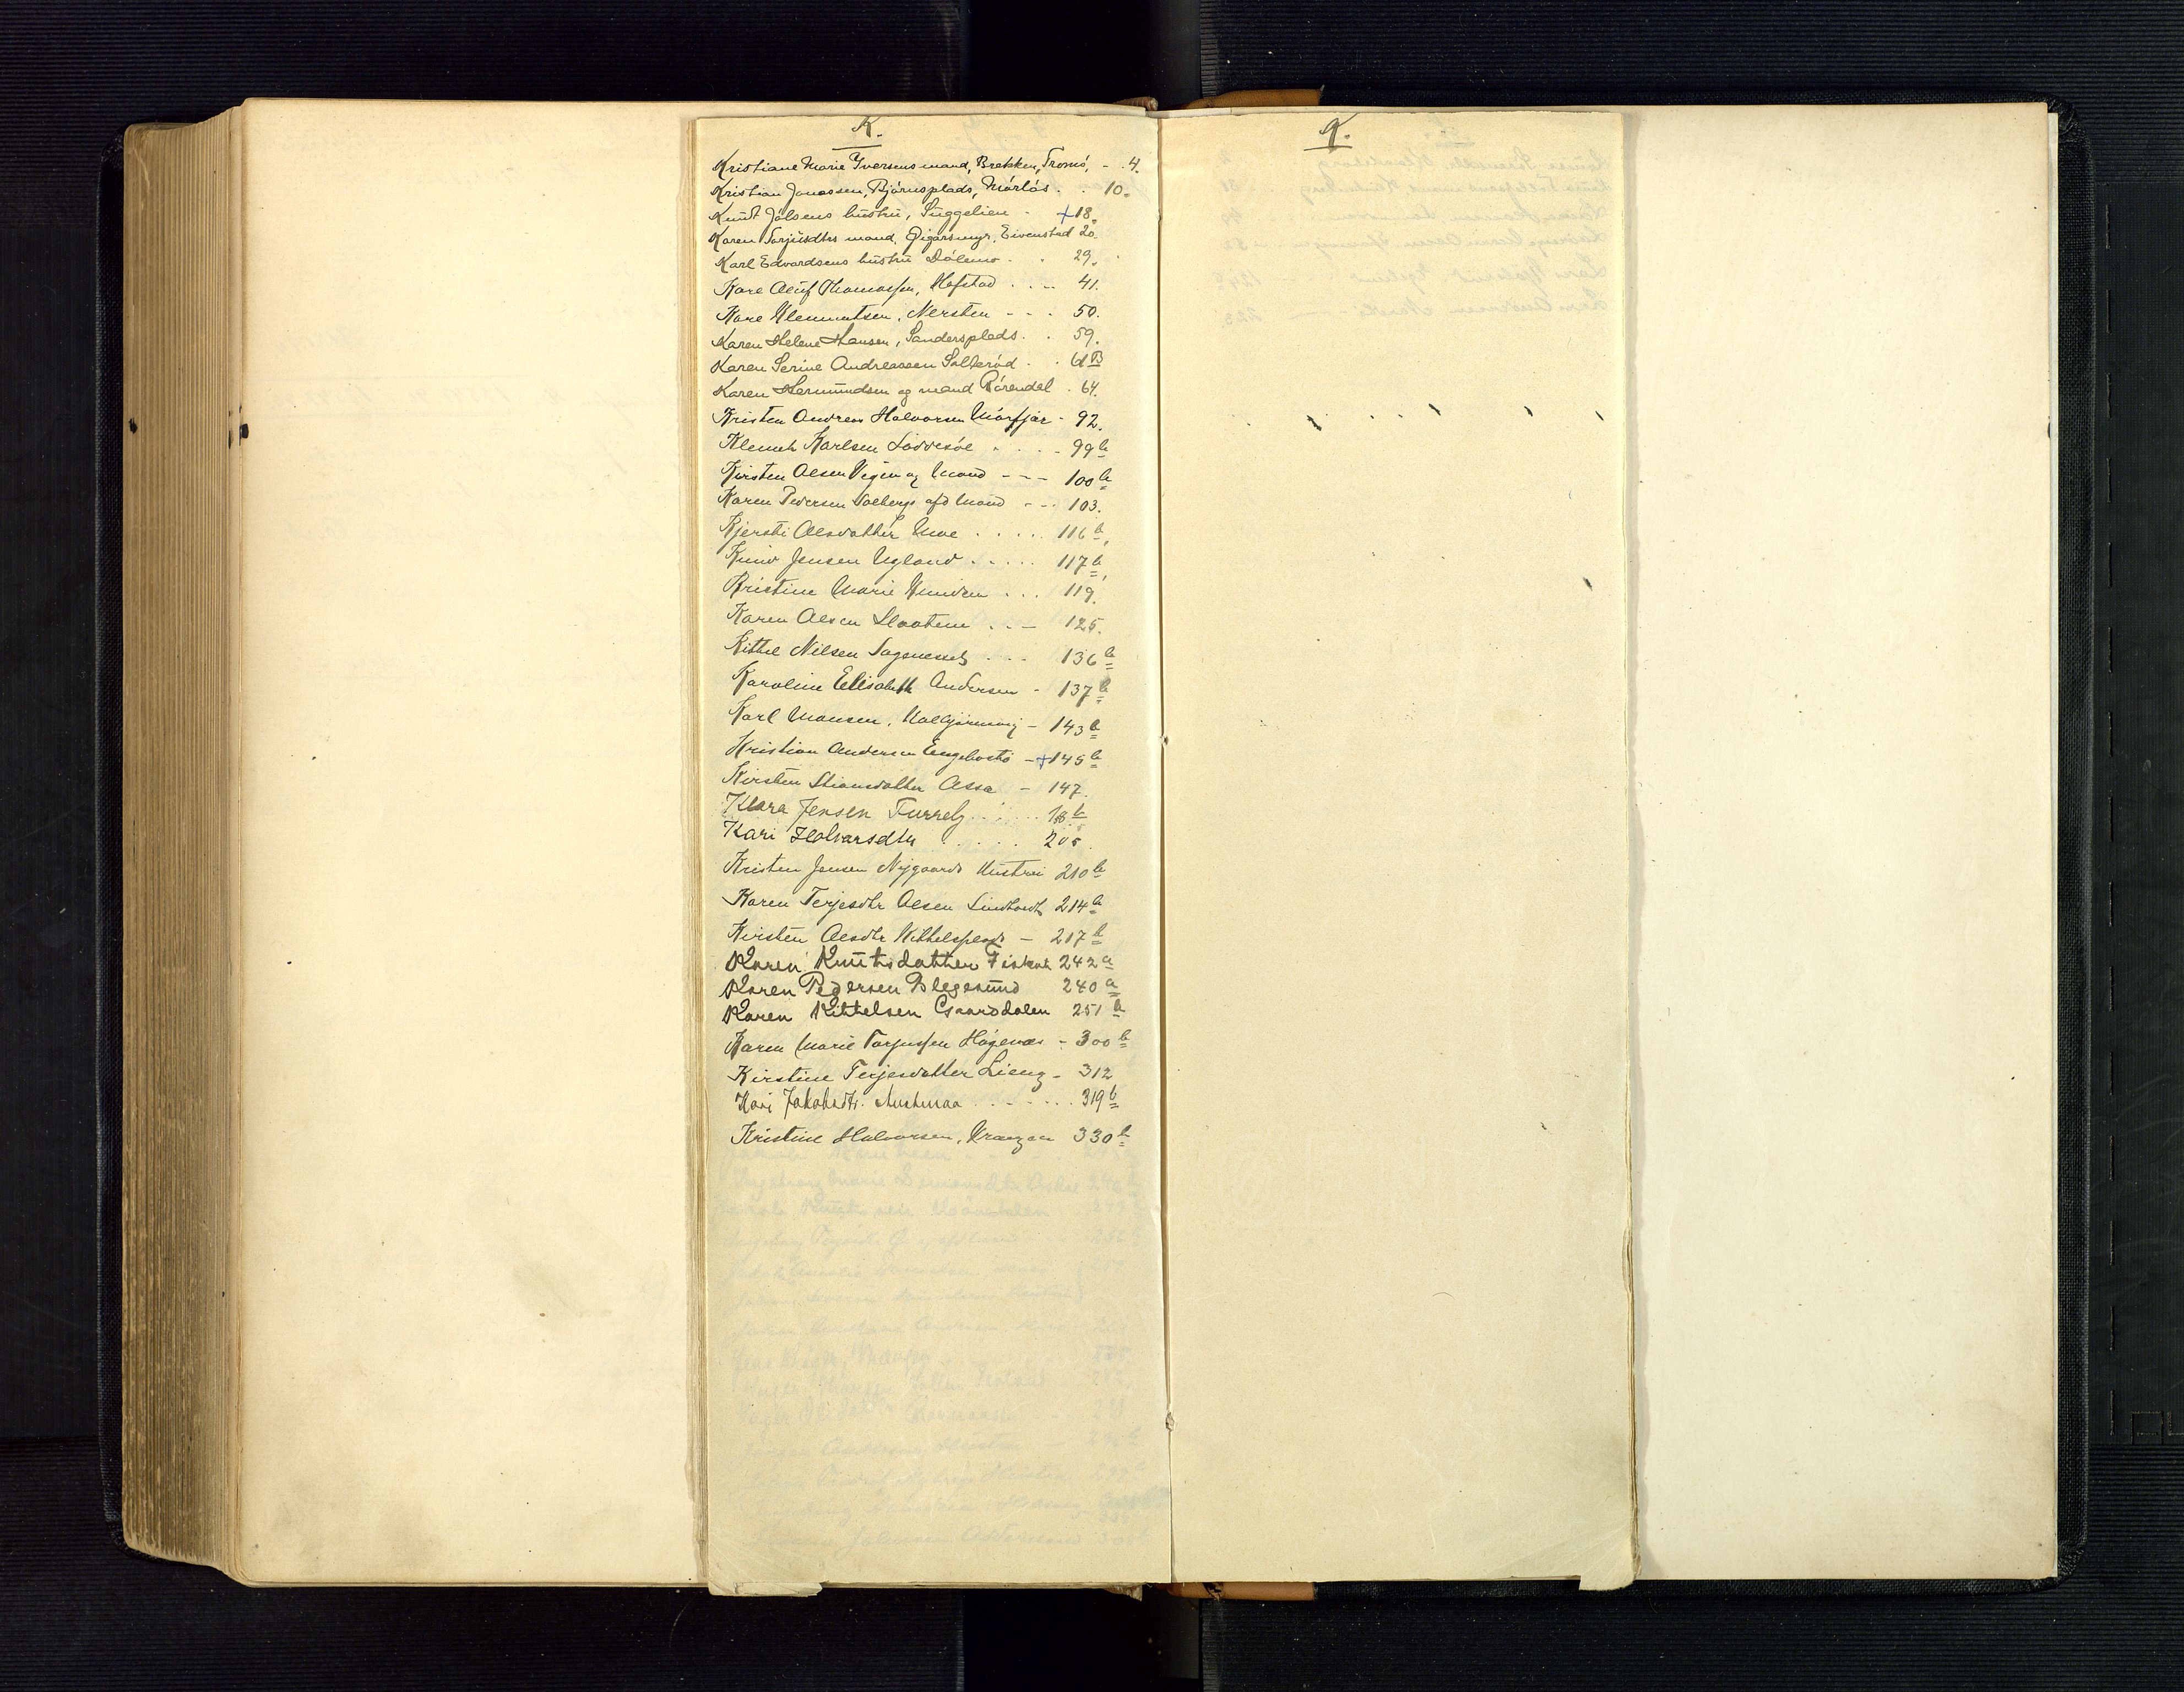 K.
Kristiane Marie Iversens mand, Brekken, Tromö, - . 4.
Kristian Jonassen, Bjørnsplads, Mørlös. . . 10.
Knudt Jölsens hustru, Suggelien - +18.
Karen Torjusdtrs mand, Eivenstad 20.
Karl Edvardsens hustru Dölemo - . 29.
Kare Oluf Thomassen, Hofstad . . . . 41.
Kare Klemmetsen, Nersten - - - 50.
Karen Helene Hansen, Sandersplads. . 59.
Karen Serine Andreassen Salterød - . 61 B
Karen Hermundsen og mand Rörendal . 64.
Kristen Andreas Halvorsen Mörfjær - 92.
Klemet Karlsen Löddesöl . . . . 99 b
Kirsten Olsen Vegen og Mand - - - 100 b
Karen Pedersen Solberg afd Mand - - - 103.
Kjersti Olsdatter Moe . . . . . 116 b,
Knud Jensen Ugland . . . . . 117 b,
Kristine Marie Knudsen . . . 119.
Karen Olsen Slaatene . . - 125.
Kittel Nilsen Sagenesset . . . 136 b
Karoline Elisabeth Andersen - 137 b
Karl Monsen, - 143 b
Kristian Andersen Engebostö - +145 b
Kirsten Stiansdatter Assa - 147.
Klara Jensen Furrely . . . . . . b
Kari Halvarsdtr . . . . . 205.
Kristen Jensen Nygaards Hustru 210 b
Karen Terjesdtr Olsen Lindtveit 214 b
Kirsten Olsdtr Kittelsplads - 217 b
Karen Knutsdatter Fiskvat 242 a
Karen Pedersen Blegesund 240 a
Karen Kittelsen Gaardsdalen 251 b
Karen Marie Torjussen Högenæs - 300 b
Kirstine Terjesdatter Lieng - 312
Kari Jakobsdtr. Austmaa . . . . . . . 319 b
Kristine Halvorsen, 330 b
Q.